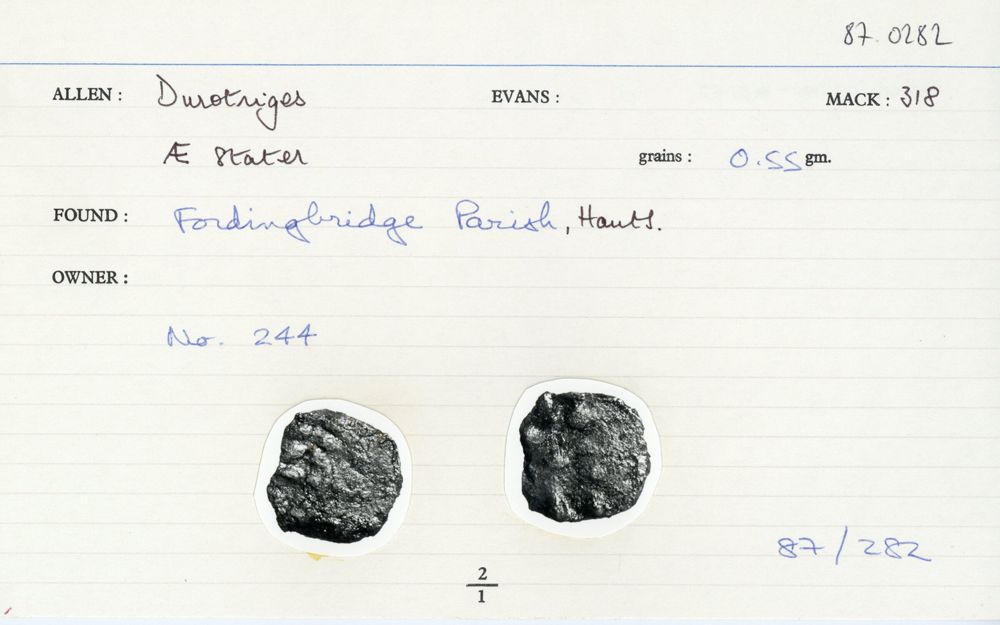 87.0282
ALLEN : Durotriges EVANS : MACK : 318
Æ Stater grains : 0.55 gm.
FOUND : Fordingbridge Parish, Hants.
OWNER :
No. 244
87/282
2
1